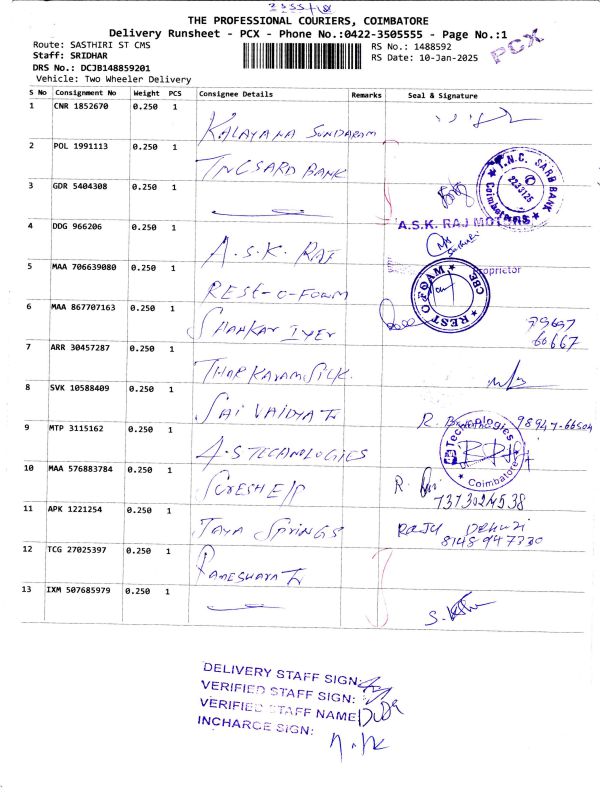 THE PROFESSIONAL COURIERS, COIMBATORE
Delivery Runsheet - PCX - Phone No.:0422-3505555 - Page No.:1
Route: SASTHIRI ST CMS
RS No.: 1488592
PCX
Staff: SRIDHAR
RS Date: 10-Jan-2025
DRS No.: DCJB148859201
Vehicle: Two Wheeler Delivery
S No Consignment No Weight PCS Consignee Details Remarks Seal & Signature
1 CNR 1852670 0.250 1 KALAYANA SUNDARAM
2 POL 1991113 0.250 1 TNCSARD BANK
T.N.C. SARB BANK
Coimbatore
3 GDR 5404308 0.250 1
A.S.K. RAJ
4 DDG 966206 0.250 1 A.S.K. RAJ
5 MAA 706639080 0.250 1 REST-O-FOAM
Proprietor
REST O FOAM CBE
6 MAA 867707163 0.250 1 SHANKAR IYER
60667
7 ARR 30457287 0.250 1 THARKARAM SILK.
8 SVK 10588409 0.250 1 SAI VAIDYA
R. 98947-66504
9 MTP 3115162 0.250 1 A.S TECHNOLOGIES
Technologies
Coimbatore
10 MAA 576883784 0.250 1 SURESH E/P
R.
7373024538
11 APK 1221254 0.250 1 JAYA SPRINGS
RAJU
8148947330
12 TCG 27025397 0.250 1 RAMESHWARA
13 IXM 507685979 0.250 1
DELIVERY STAFF SIGN:
VERIFIED STAFF SIGN:
VERIFIED STAFF NAME
INCHARGE SIGN: